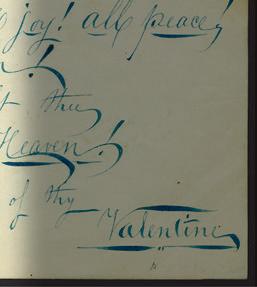 joy! all peace!
!
thee
Heaven!
of thy
Valentine